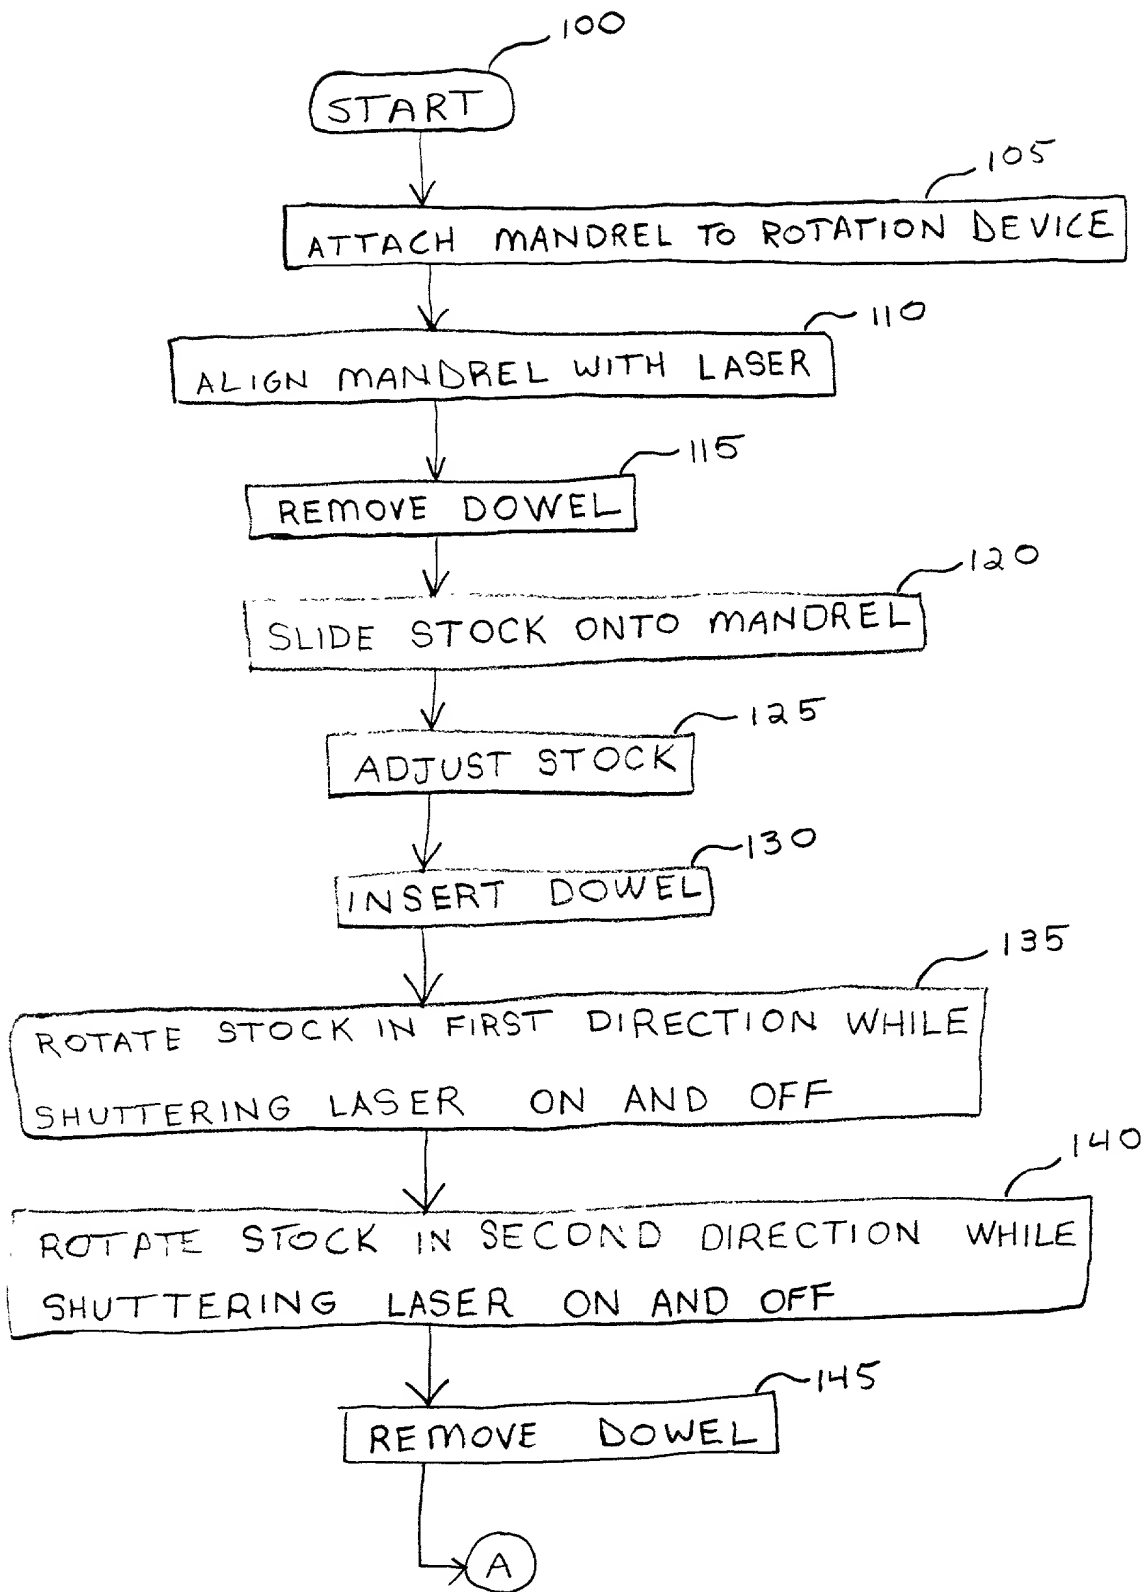 100
START
105
ATTACH MANDREL TO ROTATION DEVICE
110
ALIGN MANDREL WITH LASER
115
REMOVE DOWEL
120
SLIDE STOCK ONTO MANDREL
125
ADJUST STOCK
130
INSERT DOWEL
135
ROTATE STOCK IN FIRST DIRECTION WHILE
SHUTTERING LASER ON AND OFF
140
ROTATE STOCK IN SECOND DIRECTION WHILE
SHUTTERING LASER ON AND OFF
145
REMOVE DOWEL
A